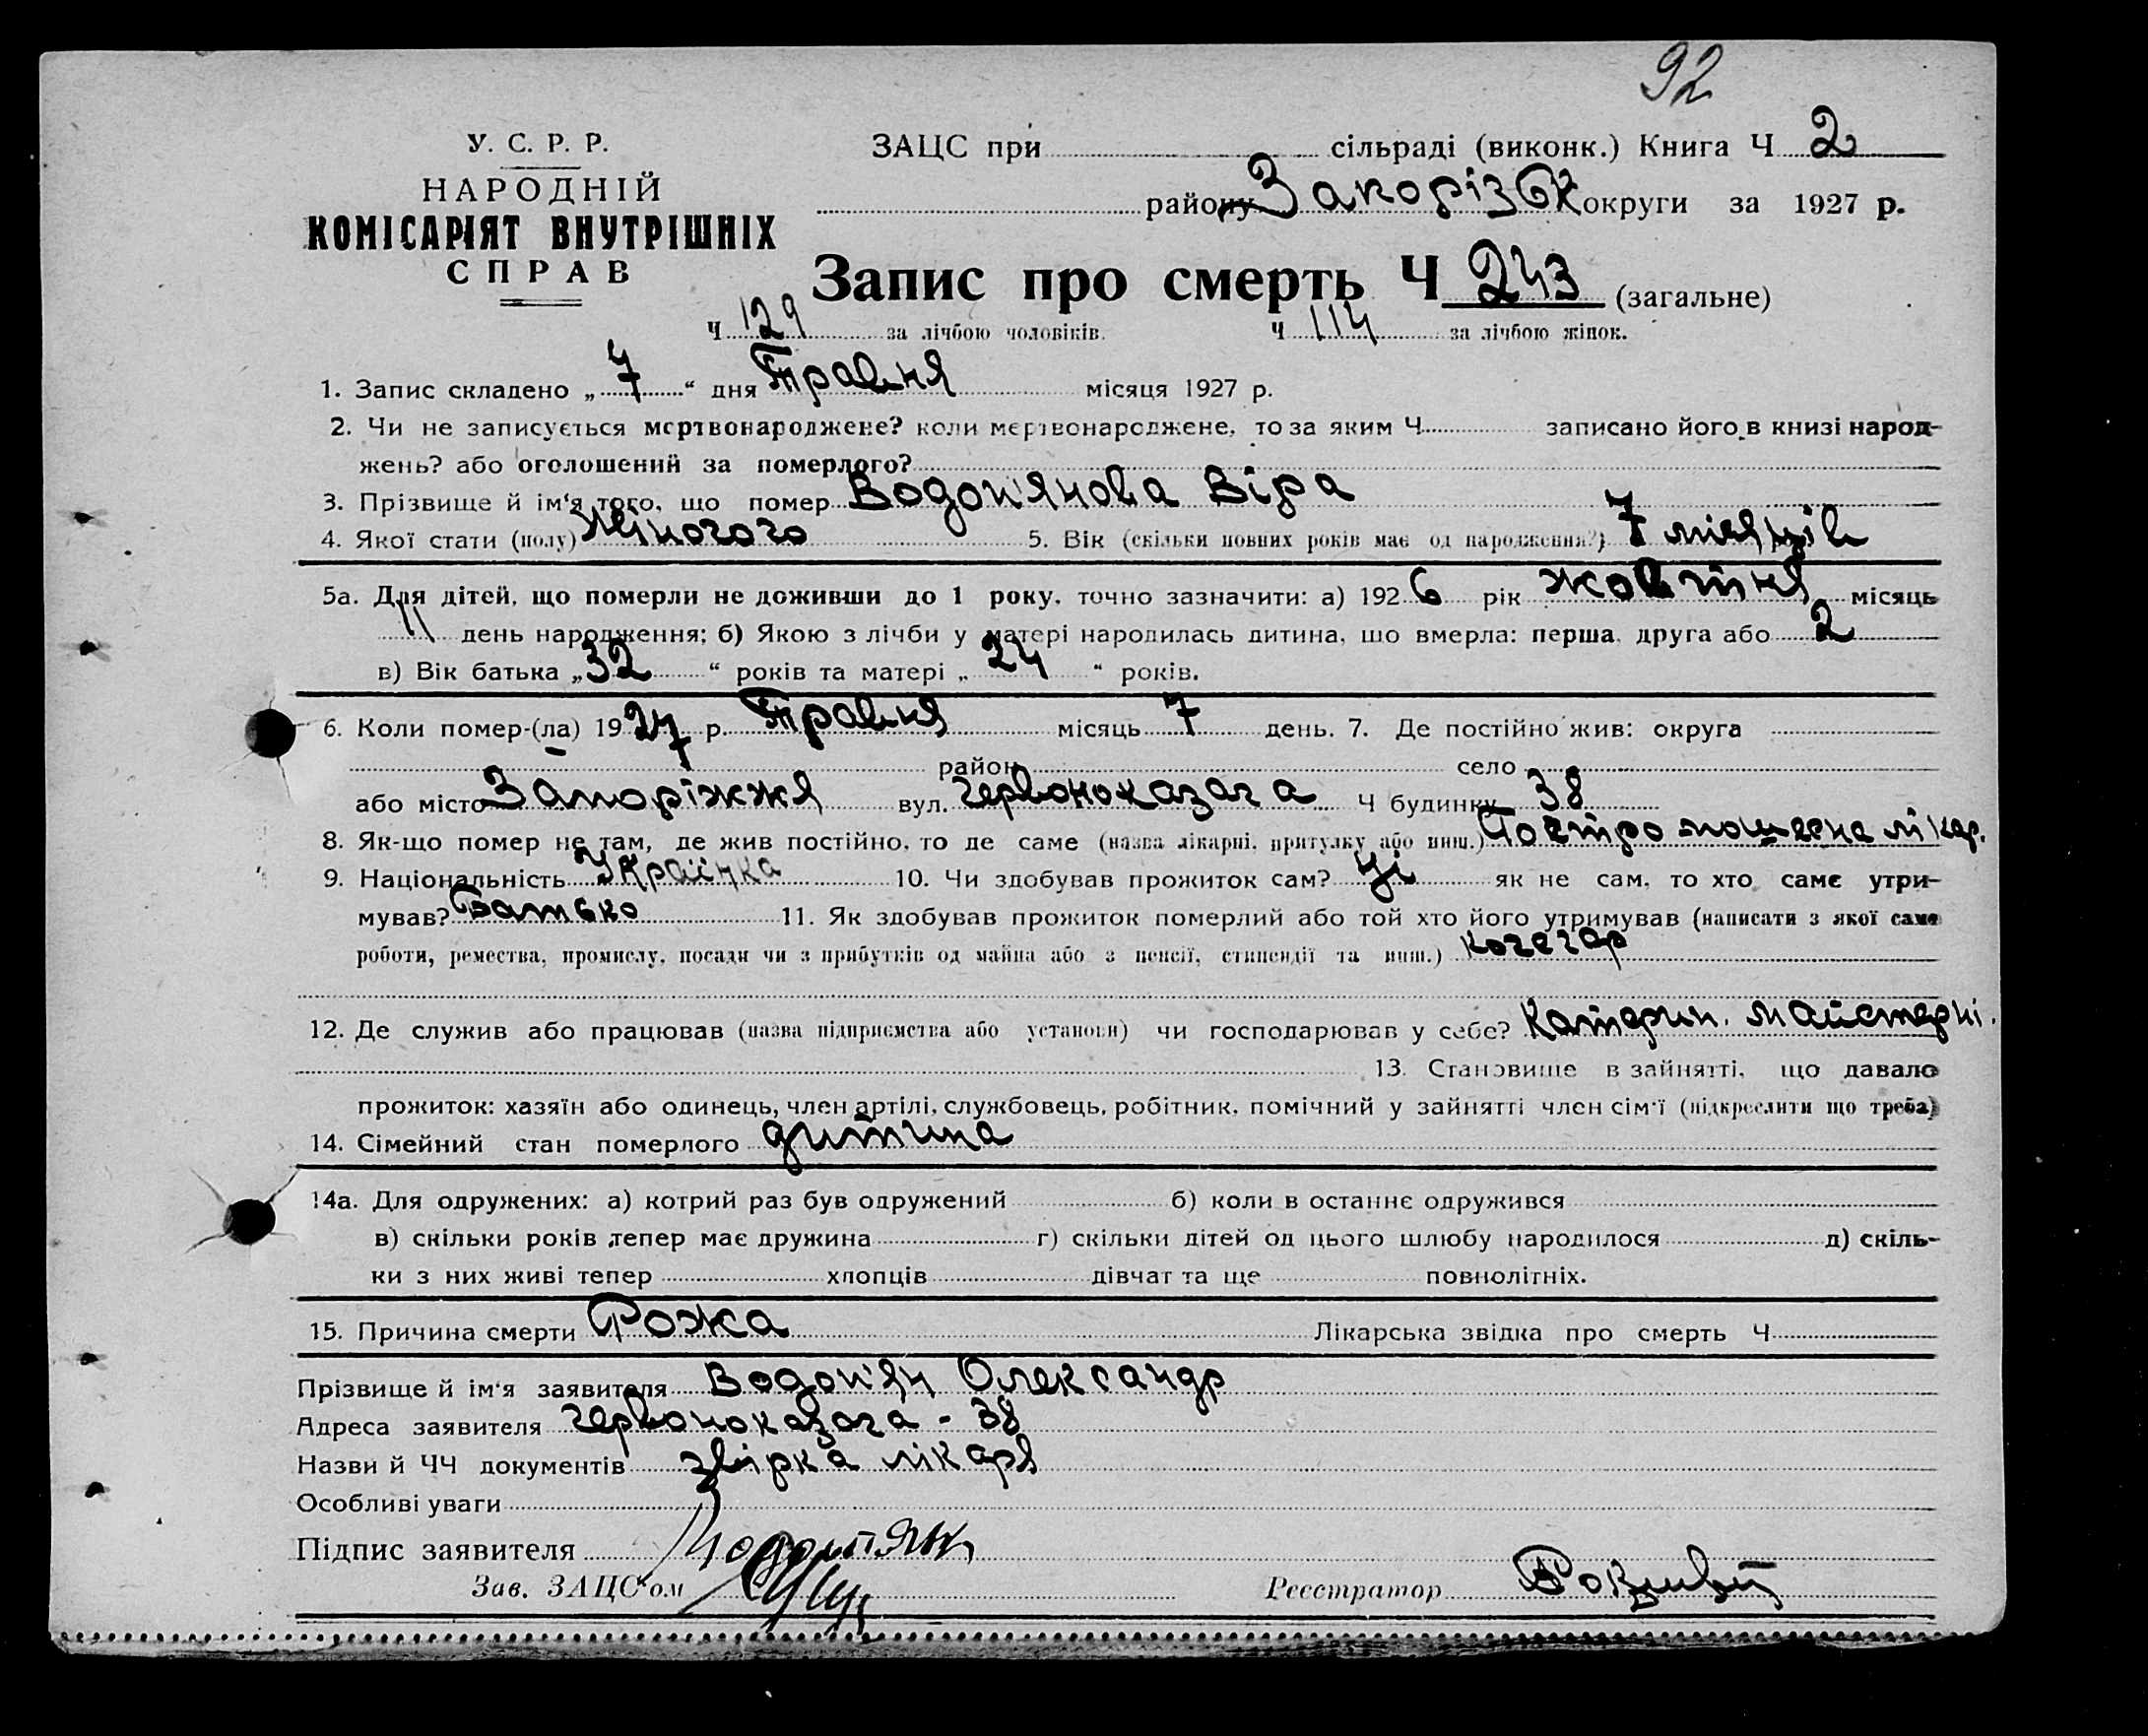 92
У. С. Р. Р.
НАРОДНІЙ
КОМІСАРІЯТ ВНУТРІШНІХ
СПРАВ
ЗАЦС при сільраді (виконк.) Книга Ч 2
району Запорізьк округи за 1927 р.
Запис про смерть Ч 243 (загальне)
Ч 129 за лічбою чоловіків. Ч 114 за лічбою жінок.
1. Запис складено „ 7 “ дня Травня місяця 1927 р.
2. Чи не записується мертвонароджене? коли мертвонароджене, то за яким Ч записано його в книзі народ-
жень? або оголошений за померлого?
3. Прізвище й ім‘я того, що помер Водоп'янова Віра
4. Якої стати (полу) Жіночого 5. Вік (скільки повних років має од народження?) 7 місяців
5а. Для дітей, що померли не доживши до 1 року, точно зазначити: а) 1926 рік жовтня місяць
11 день народження; б) Якою з лічби у матері народилась дитина, що вмерла: перша, друга або 2
в) Вік батька „ 32 “ років та матері „ 24 “ років.
6. Коли помер-(ла) 1927 р. Травня місяць 7 день. 7. Де постійно жив: округа
район село
або місто Запоріжжя вул. Червонокозача Ч будинку 38
8. Як-що помер не там, де жив постійно, то де саме (назва лікарні, притулку або инш.) Гостро пошесна лікар.
9. Національність Українка 10. Чи здобував прожиток сам? Ні як не сам, то хто саме утри-
мував? Батько 11. Як здобував прожиток померлий або той хто його утримував (написати з якої саме
роботи, ремества, промислу, посади чи з прибутків од майна або з пенсії, стипендії та инш.) кочегар
12. Де служив або працював (назва підприємства або установи) чи господарював у себе? Катерин. майстерні.
13. Становище в зайнятті, що давало
прожиток: хазяїн або одинець, член артілі, службовець, робітник, помічний у зайнятті член сім‘ї (підкреслити що треба)
14. Сімейний стан померлого дитина
14а. Для одружених: а) котрий раз був одружений б) коли в останнє одружився
в) скільки років тепер має дружина г) скільки дітей од цього шлюбу народилося д) скіль-
ки з них живі тепер хлопців дівчат та ще повнолітніх.
15. Причина смерти Рожа Лікарська звідка про смерть Ч
Прізвище й ім‘я заявителя Водоп'ян Олександр
Адреса заявителя Червонокозача - 38
Назви й ЧЧ документів звірка лікаря
Особливі уваги
Підпис заявителя Водопян
Зав. ЗАЦС‘ом
Реєстратор